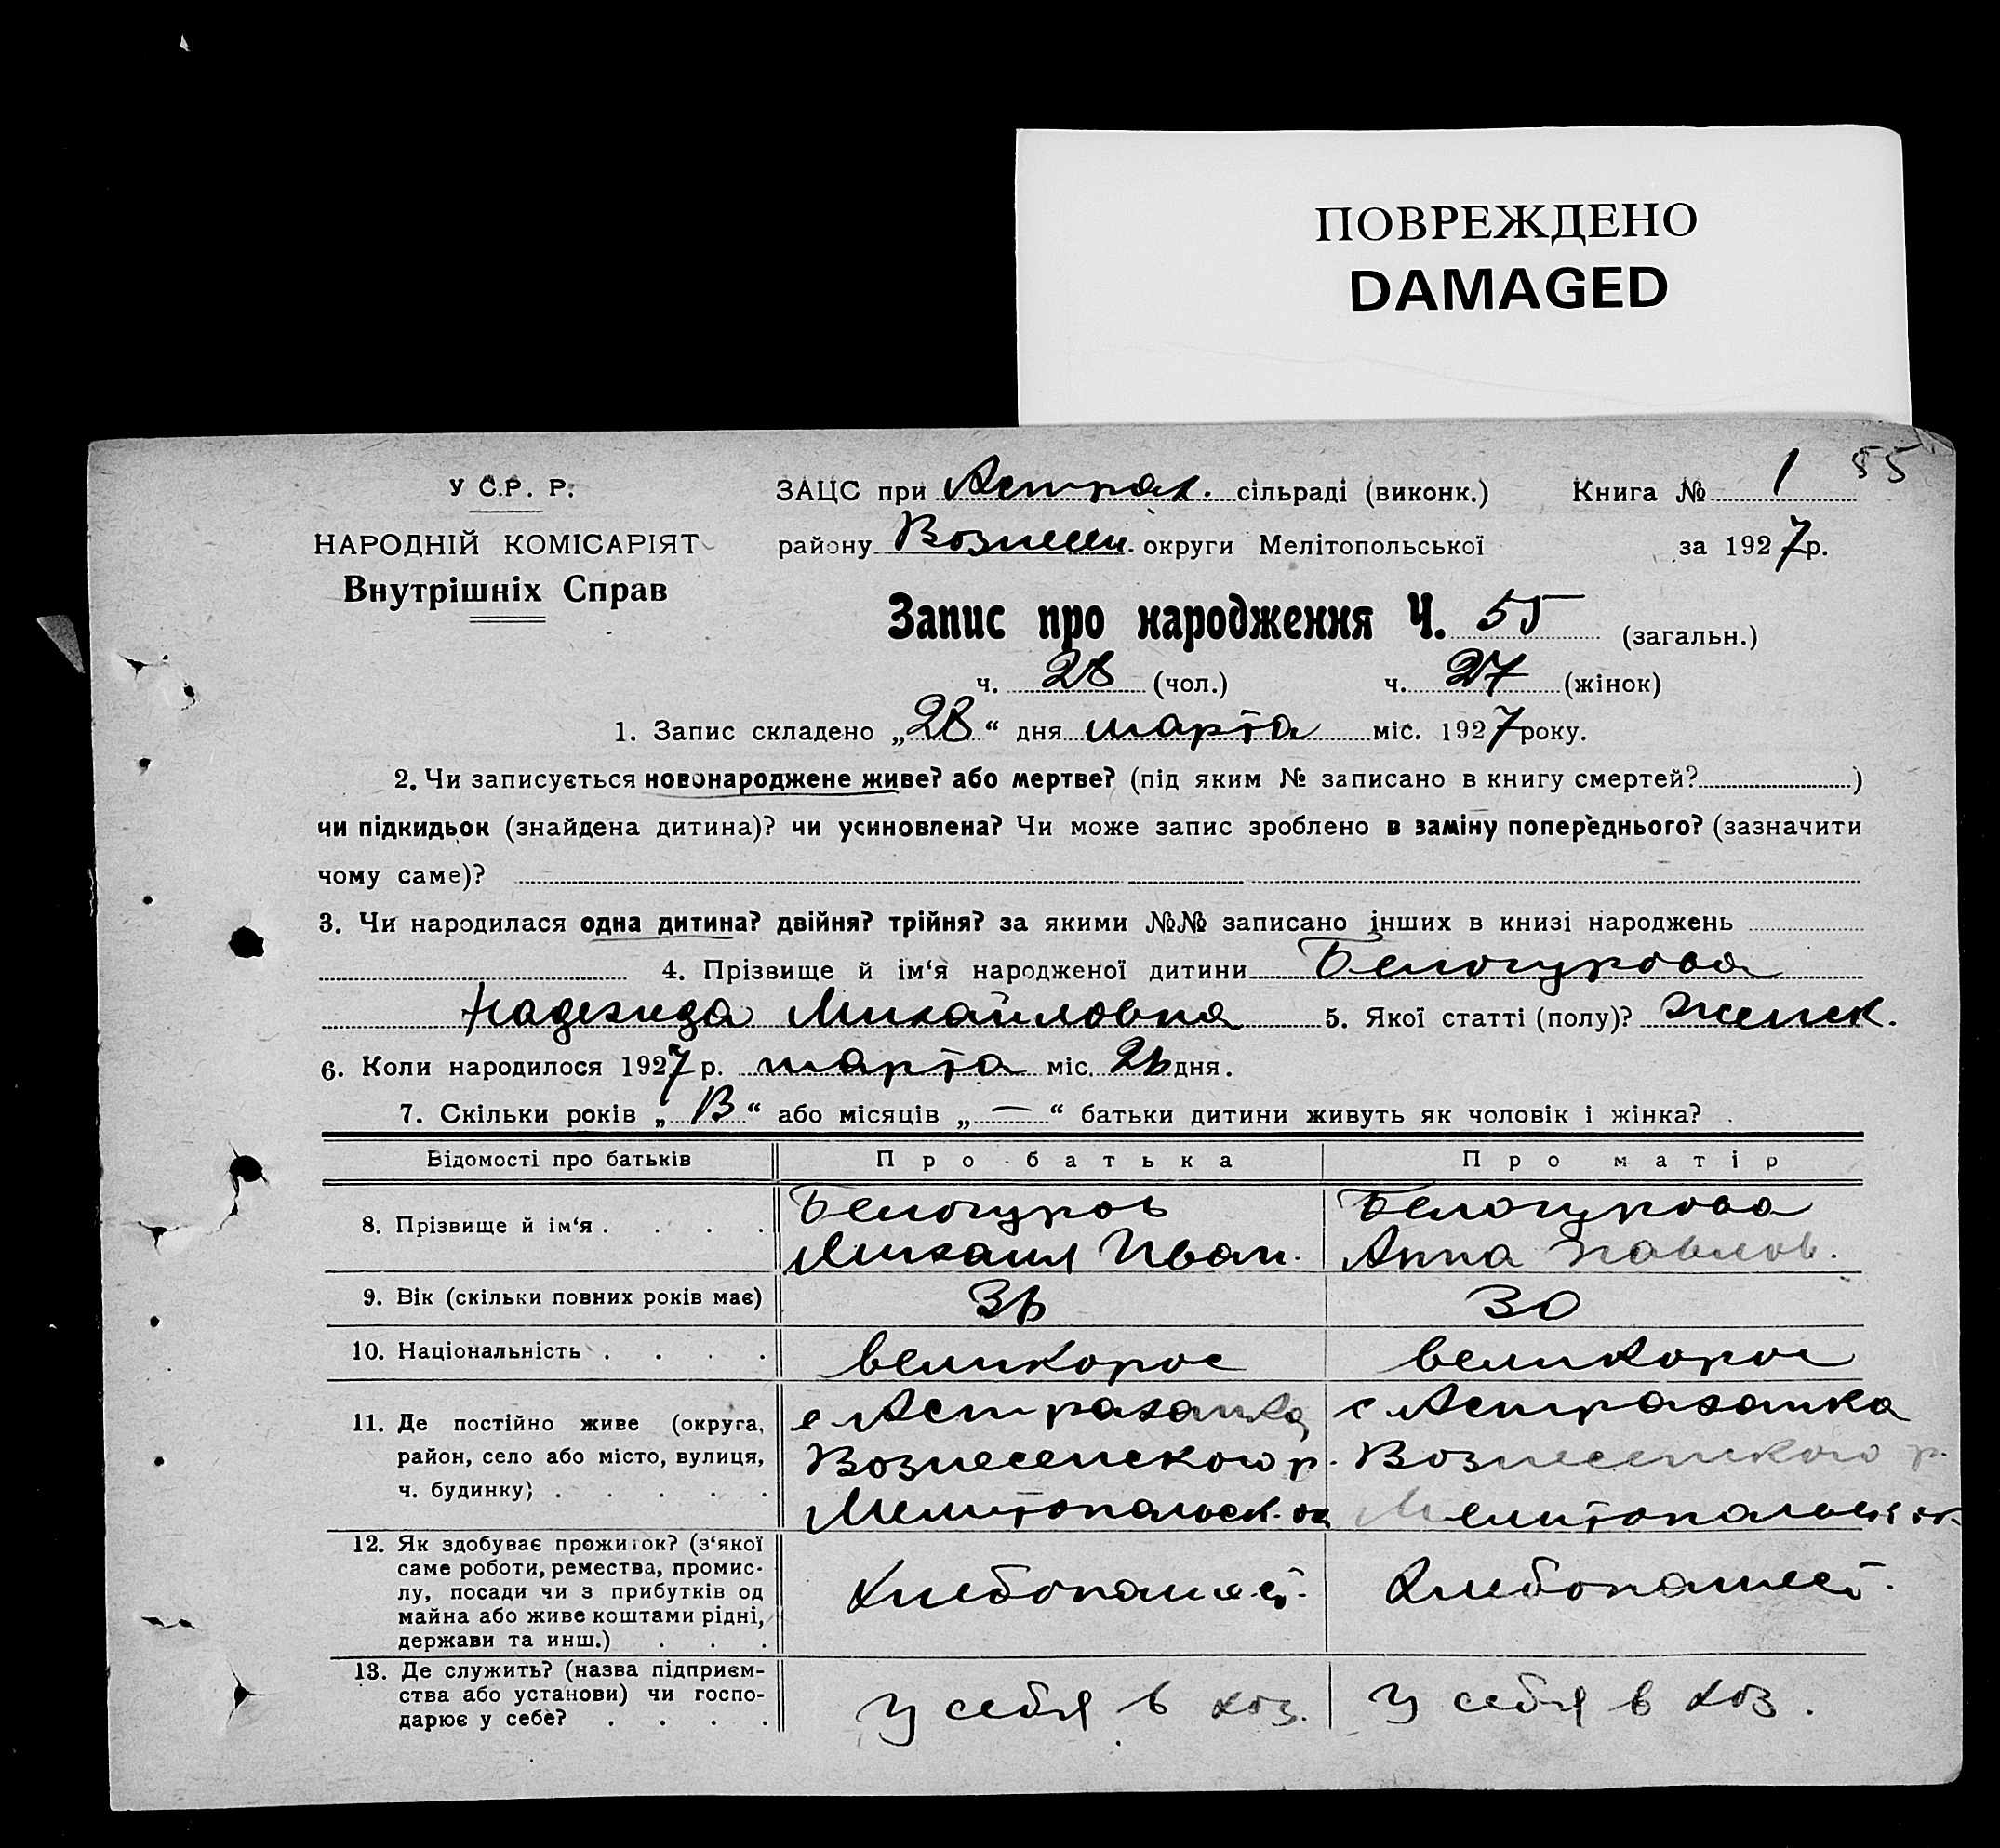 ПОВРЕЖДЕНО
DAMAGED
55
У С.Р. Р.
ЗАЦС при Астрах. сільраді (виконк.) Книга № 1
НАРОДНІЙ КОМІСАРІЯТ
району Вознесен. округи Мелітопольської за 1927 р.
Внутрішніх Справ
Запис про народження Ч. 55 (загальн.)
ч. 28 (чол.) ч. 27 (жінок)
1. Запис складено „28“ дня марта міс. 1927 року.
2. Чи записується новонароджене живе? або мертве? (під яким № записано в книгу смертей? )
чи підкидьок (знайдена дитина)? чи усиновлена? Чи може запис зроблено в заміну попереднього? (зазначити
чому саме)?
3. Чи народилася одна дитина? двійня? трійня? за якими №№ записано інших в книзі народжень
4. Прізвище й ім‘я народженої дитини Белогурова
Надежда Михайловна 5. Якої статті (полу)? Женск.
6. Коли народилося 1927 р. марта міс. дня.
7. Скільки років „ “ або місяців „—“ батьки дитини живуть як чоловік і жінка?
Відомості про батьків Про батька Про матір
8. Прізвище й ім‘я . . . . Белогуров Белогурова
Михаил Иван. Анна Павлов.
9. Вік (скільки повних років має) 30
10. Національність . . . . великорос великорос
11. Де постійно живе (округа, с Астраханка с Астраханка
район, село або місто, вулиця, Вознесенского р. Вознесенского р.
ч. будинку) . . . . . Мелитопольск. ок Мелитопольск ок.
12. Як здобуває прожиток? (з‘якої
саме роботи, ремества, промис-
лу, посади чи з прибутків од Хлебопашест. Хлебопашест.
майна або живе коштами рідні,
держави та инш.) . . .
13. Де служить? (назва підприєм-
ства або установи) чи госпо- У себя в хоз. У себя в хоз.
дарює у себе? . . . .